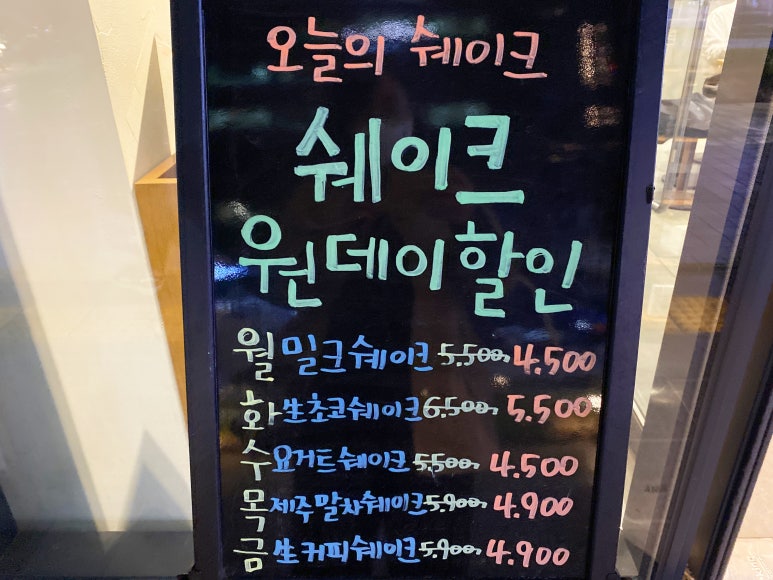 오늘의 쉐이크
쉐이크
원데이할인
월 밀크쉐이크 5.500, 4.500
화 生초코쉐이크 6.500, 5.500
수 요거트쉐이크 5.500, 4.500
목 제주말차쉐이크 5.900, 4.900
금 生커피쉐이크 5.900, 4.900